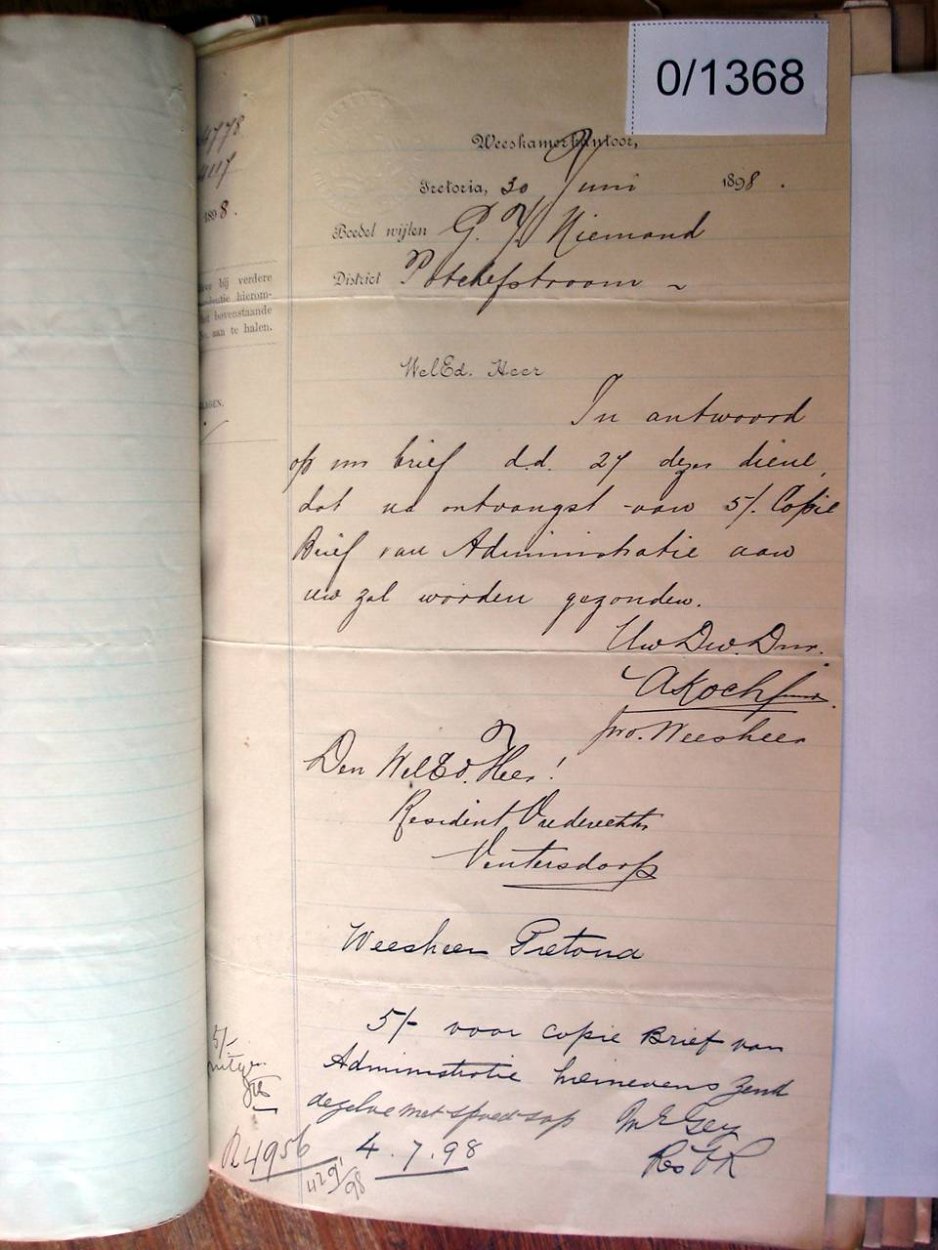 0/1368
Weeskamerkantoor,
Pretoria, 30 Juni 1898.
Boedel wijlen G. J. Niemand
District Potchefstroom ~
1898.
bij verdere
hierom-
bovenstaande
aan te halen.
WelEd. Heer
In antwoord
op uw brief d.d. 27 dezer diene,
dat na ontvangst van 5/. Copie
Brief van Administratie aan
uw zal worden gezonden.
Uw Dw. Dnr.
A Koch
pro. Weesheer
Den WelEd. Heer!
Resident Vrederechter
Ventersdorp
Weesheer Pretoria
5/- voor copie Brief van
Administratie hiernevens zend
dezelve met spoed s.v.p.
Res V R
4.7.98
5/-
R4956